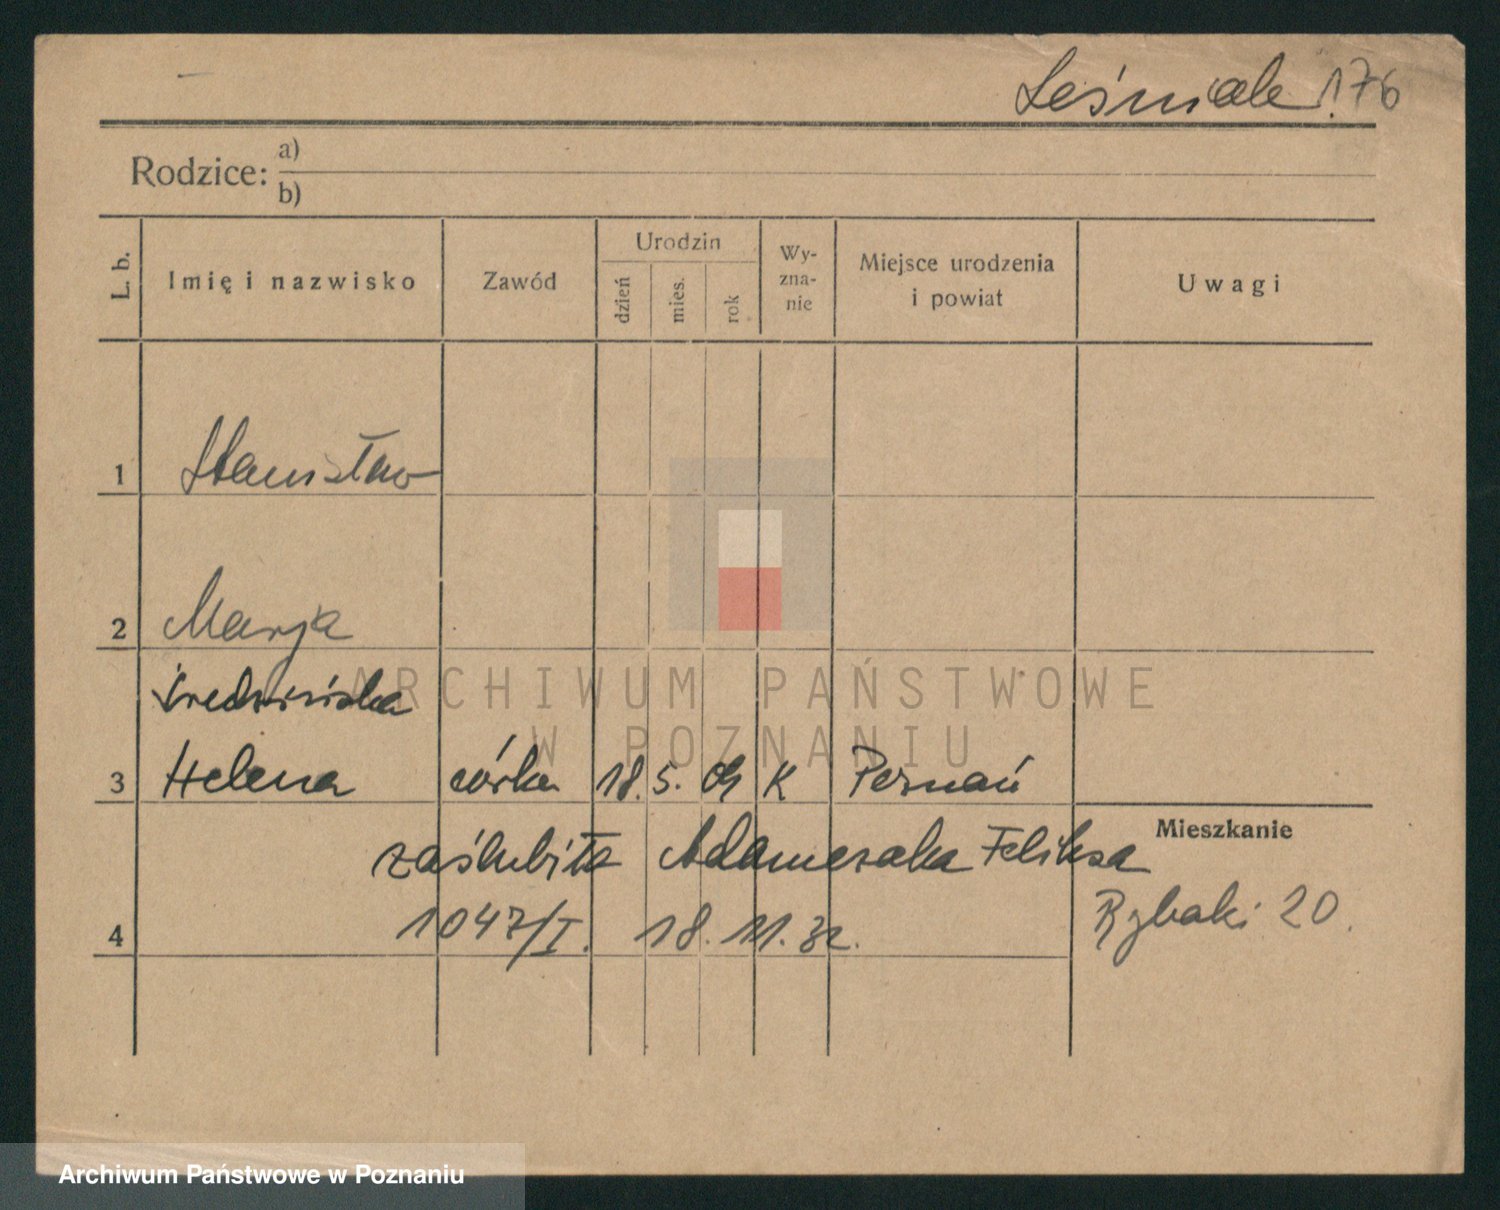 Leśniak 176
Rodzice: a)
b)
L. b.
Imię i nazwisko
Zawód
Urodzin
dzień
mies.
rok
Wy-
zna-
nie
Miejsce urodzenia
i powiat
Uwagi
1 Stanisław
2 Marja
3 Helena córka 18. 5. 09 K Poznań
Mieszkanie
zaślubiła Adamczaka Feliksa
4 1047/I. 18. 11. 32.
Rybaki 20.
ARCHIWUM PAŃSTWOWE
W POZNANIU
Archiwum Państwowe w Poznaniu